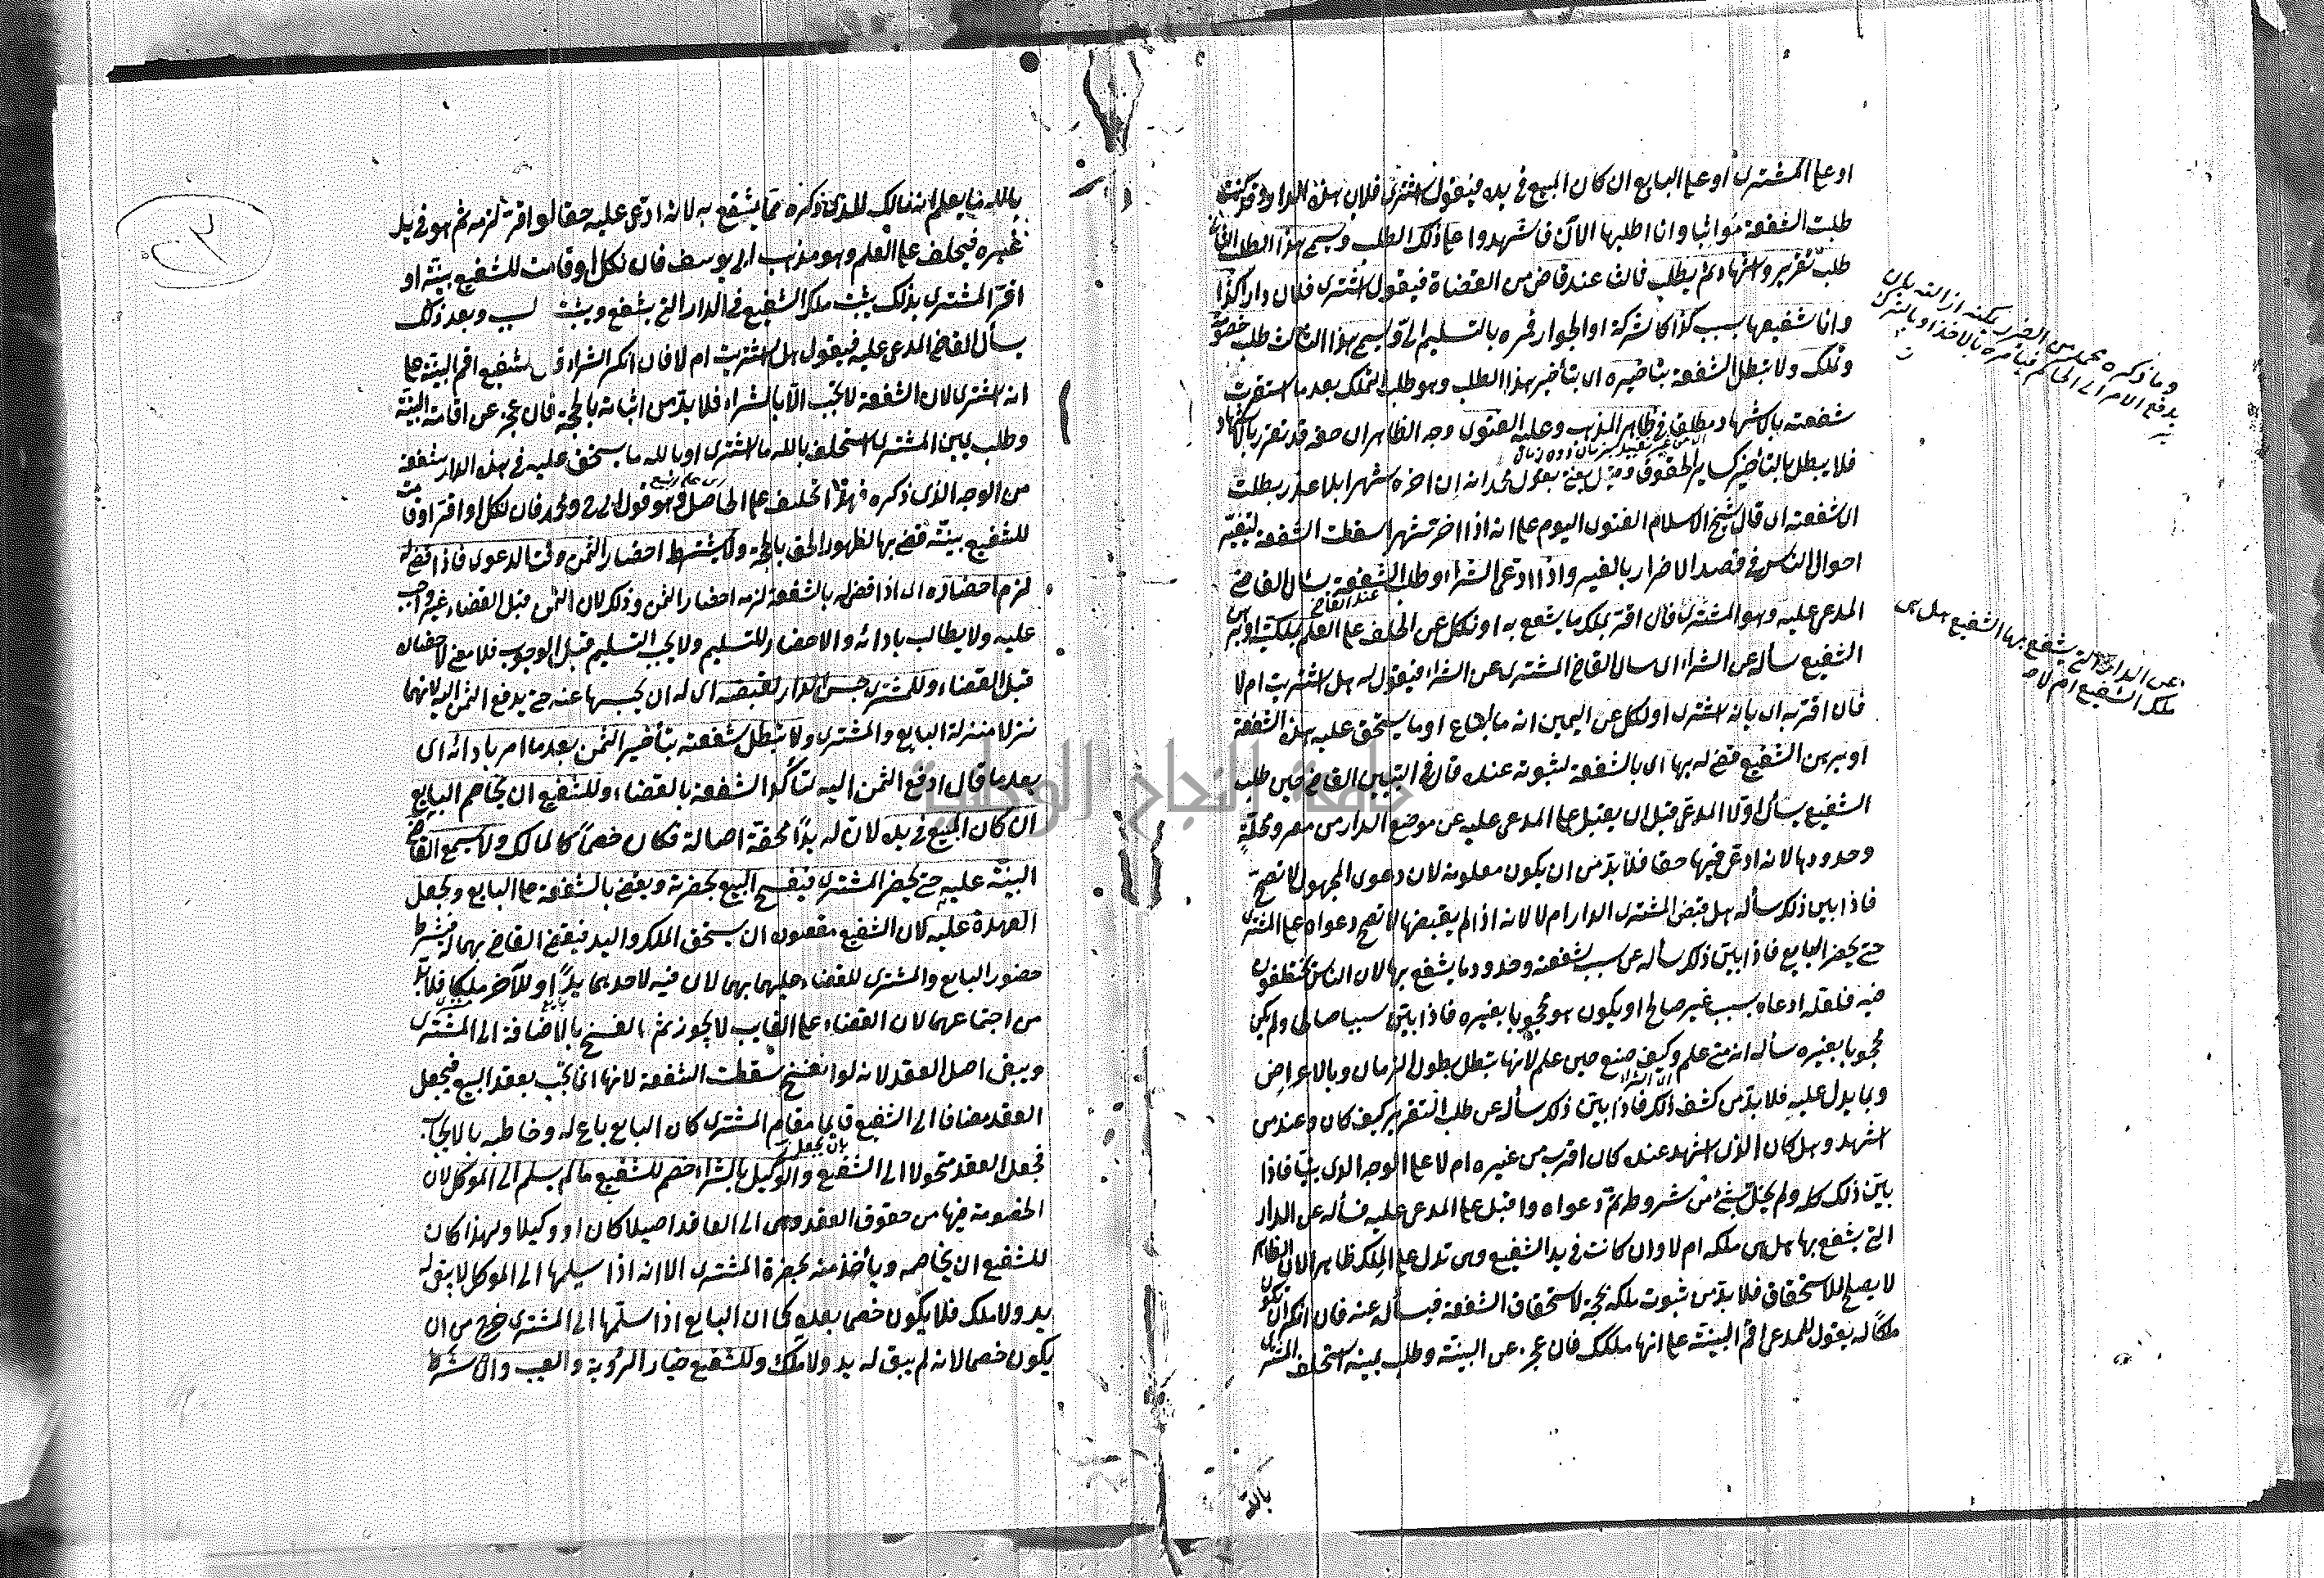 او على المشترى او على البايع ان كان المبيع فى يده فيقول اشترى فلان هذه الدار وقد كنت
طلبت الشفعة مواثبا وانا اطلبها الآن فاشهدوا على ذلك الطلب ويسمى هذا الطلب الثانى
طلب تقرير واشهاد ثم يطلب ثالث عند قاض من القضاة فيقول اشترى فلان دارا كذا
وانا شفيعها بسبب كذا كالشركة او الجوار فمره بالتسليم الى ويسمى هذا الثالث طلب خصومة
وتملك ولا تبطل الشفعة بتاخيره اى بتأخير هذا الطلب وهو طلب التملك بعد ما استقرت
شفعته بالاشهاد مطلقا فى ظاهر المذهب وعليه الفتوى وجه الظاهر ان حقه قد تقرر بالاشهاد
فلا يبطل بالتأخير كساير الحقوق وقيل يفتى بقول محمد انه ان اخره شهرا بلا عذر بطلت
اى شفعته اى قال شيخ الاسلام الفتوى اليوم على انه اذا اخر شهرا سقطت الشفعة لتغير
احوال الناس فى قصد الاضرار بالغير واذا ادعى الشراء وطلب الشفعة سأل القاضى
عند القاضى
المدعى عليه وهو المشترى فان اقر بملك ما يشفع به او نكل عن الحلف على العلم بملكه او برهن
الشفيع سأله عن الشراء اى سال القاضى المشترى عن الشراء فيقول له هل اشتريت ام لا
فان اقر به اى بانه اشترى او نكل عن اليمين انه ما ابتاع او ما يستحق عليه هذه الشفعة
او برهن الشفيع قضى له بها اى بالشفعة لثبوته عنده قال فى التبيين القاضى حين طلب
الشفيع يسأل اولا المدعى قبل ان يقبل على المدعى عليه عن موضع الدار من مصر ومحلة
وحدودها لانه ادعى فيها حقا فلا بد من ان يكون معلومة لان دعوى المجهول لا تصح
فاذا بين ذلك سأله هل قبض المشترى الدار ام لا لانه اذا لم يقبضها لا تصح دعواه على المشترى
حتى يحضر البايع فاذا بين ذلك سأله عن سبب شفعته وحدود ما يشفع بها لان الناس مختلفون
فيه فلعله ادعاه بسبب غير صالح او يكون هو محجوبا بغيره فاذا بين سببا صالحا ولم يكن
محجوبا بغيره سأله انه متى علم وكيف صنع حين علم لانها تبطل بطول الزمان وبالاعراض
وبما يدل عليه فلا بد من كشف ذلك فاذا بين ذلك سأله عن طلب التقرير كيف كان وعند من
اشهد وهل كان الذى اشهد عنده كان اقرب من غيره ام لا على الوجه الذى بينا فاذا
بين ذلك كله ولم يخل بشئ من شروطه تم دعواه واقبل على المدعى عليه فسأله عن الدار
التى يشفع بها هل هى ملكه ام لا وان كانت فى يد الشفيع وهى تدل على الملك ظاهرا لان الظاهر
لا يصلح للاستحقاق فلا بد من ثبوت ملكه بحجة لاستحقاق الشفعة فيسأله عنه فان انكر ان تكون
ملكا له يقول للمدعى اقم البينة على انها ملكك فان عجز عن البينة وطلب يمينه استحلف المشترى
بالله
وما ذكره محمد من الضرر يمكنه ازالته بان
يدفع الامر الى الحاكم فيأمره بالاخذ او بالترك
عن الدار التى يشفع بها الشفيع هل هى
ملك الشفيع ام لا
بالله ما يعلم انه مالك للذى ذكره مما يشفع به لانه ادعى عليه حقا لو اقر به لزمه ثم هو فى يد
غيره فيحلف على العلم وهو مذهب ابى يوسف فان نكل او قامت للشفيع بينة او
اقر المشترى بذلك يثبت ملك الشفيع فى الدار التى يشفع ويثبت وبعد ذلك
يسأل القاضى المدعى عليه فيقول هل اشتريت ام لا فان انكر الشراء للشفيع اقم البينة على
انه اشترى لان الشفعة لا تجب الا بالشراء فلا بد من اثباته بالحجة فان عجز عن اقامة البينة
وطلب يمين المشترى استحلف بالله ما اشترى او بالله ما يستحق عليه فى هذه الدار شفعة
من الوجه الذى ذكره فهذا تحليف على الحاصل وهو قول ومحمد فان نكل او اقر او قامت
للشفيع بينة قضى بها لظهور الحق بالحجة ولا يشترط احضار الثمن وقت الدعوى فاذا قضى له
لزم احضاره اى اذا قضى له بالشفعة لزمه احضار الثمن وذلك لان الثمن قبل القضاء غير واجب
عليه ولا يطالب بادائه والاحضار للتسليم ولا يجب التسليم قبل الوجوب فلا معنى لاحضاره
قبل القضاء وللمشترى حبس الدار لقبضه اى له ان يحبسها عنه حتى يدفع الثمن اليه لانهما
نزلا منزلة البايع والمشترى ولا تبطل شفعته بتأخير الثمن بعد ما امر بادائه اى
بعد ما قال ادفع الثمن اليه لتأكد الشفعة بالقضاء وللشفيع ان يخاصم البايع
ان كان المبيع فى يده لان له يدا محقة اصالة فكان خصما كالمالك ولا يسمع القاضى
البينة عليه حتى يحضر المشترى فيفسخ البيع بحضرته ويقضى بالشفعة على البايع ويجعل
العهدة عليه لان الشفيع مقصوده ان يستحق الملك واليد فيقضى القاضى بهما له فيشترط
حضور البايع والمشترى للقضاء عليهما بهما لان فيه لاحدهما يدا وللآخر ملكا فلا بد
من اجتماعهما لان القضاء على الغايب لا يجوز ثم الفسخ بالاضافة الى المشترى
ويبقى اصل العقد لانه لو انفسخ سقطت الشفعة لانها انما تجب بعقد البيع فيجعل
العقد مضافا الى الشفيع قايما مقام المشترى كان البايع باع له وخاطبه بالايجاب
بان يجعل
فجعل العقد متحولا الى الشفيع والوكيل بالشراء خصم للشفيع ما لم يسلم الى الموكل لان
الخصومة فيها من حقوق العقد وهى الى العاقد اصيلا كان او وكيلا ولهذا كان
للشفيع ان يخاصمه ويأخذ منه بحضرة المشترى الا انه اذا سلمها الى الموكل لا يبقى له
يد ولا ملك فلا يكون خصما بعده كما ان البايع اذا سلمها الى المشترى خرج من ان
يكون خصما لانه لم يبق له يد ولا ملك وللشفيع خيار الرؤية والعيب وان شرط
جامعة النجاح الوطنية